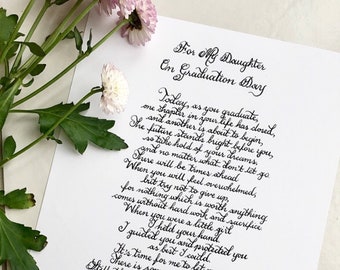 For My Daughter
On Graduation Day
Today, as you graduate,
one chapter in your life has closed,
and another is about to begin,
The future stands bright before you,
so take hold of your dreams
and no matter what don't let go.
There will be times ahead
When you will feel overwhelmed,
but try not to give up,
for nothing which is worth anything
comes without hard work and sacrifice
When you were a little girl
I held your hand
I guided you and protected you
as best I could.
It's time for me to let
There is so